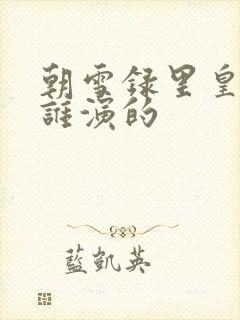 朝雪録里皇
誰演的
藍凱英